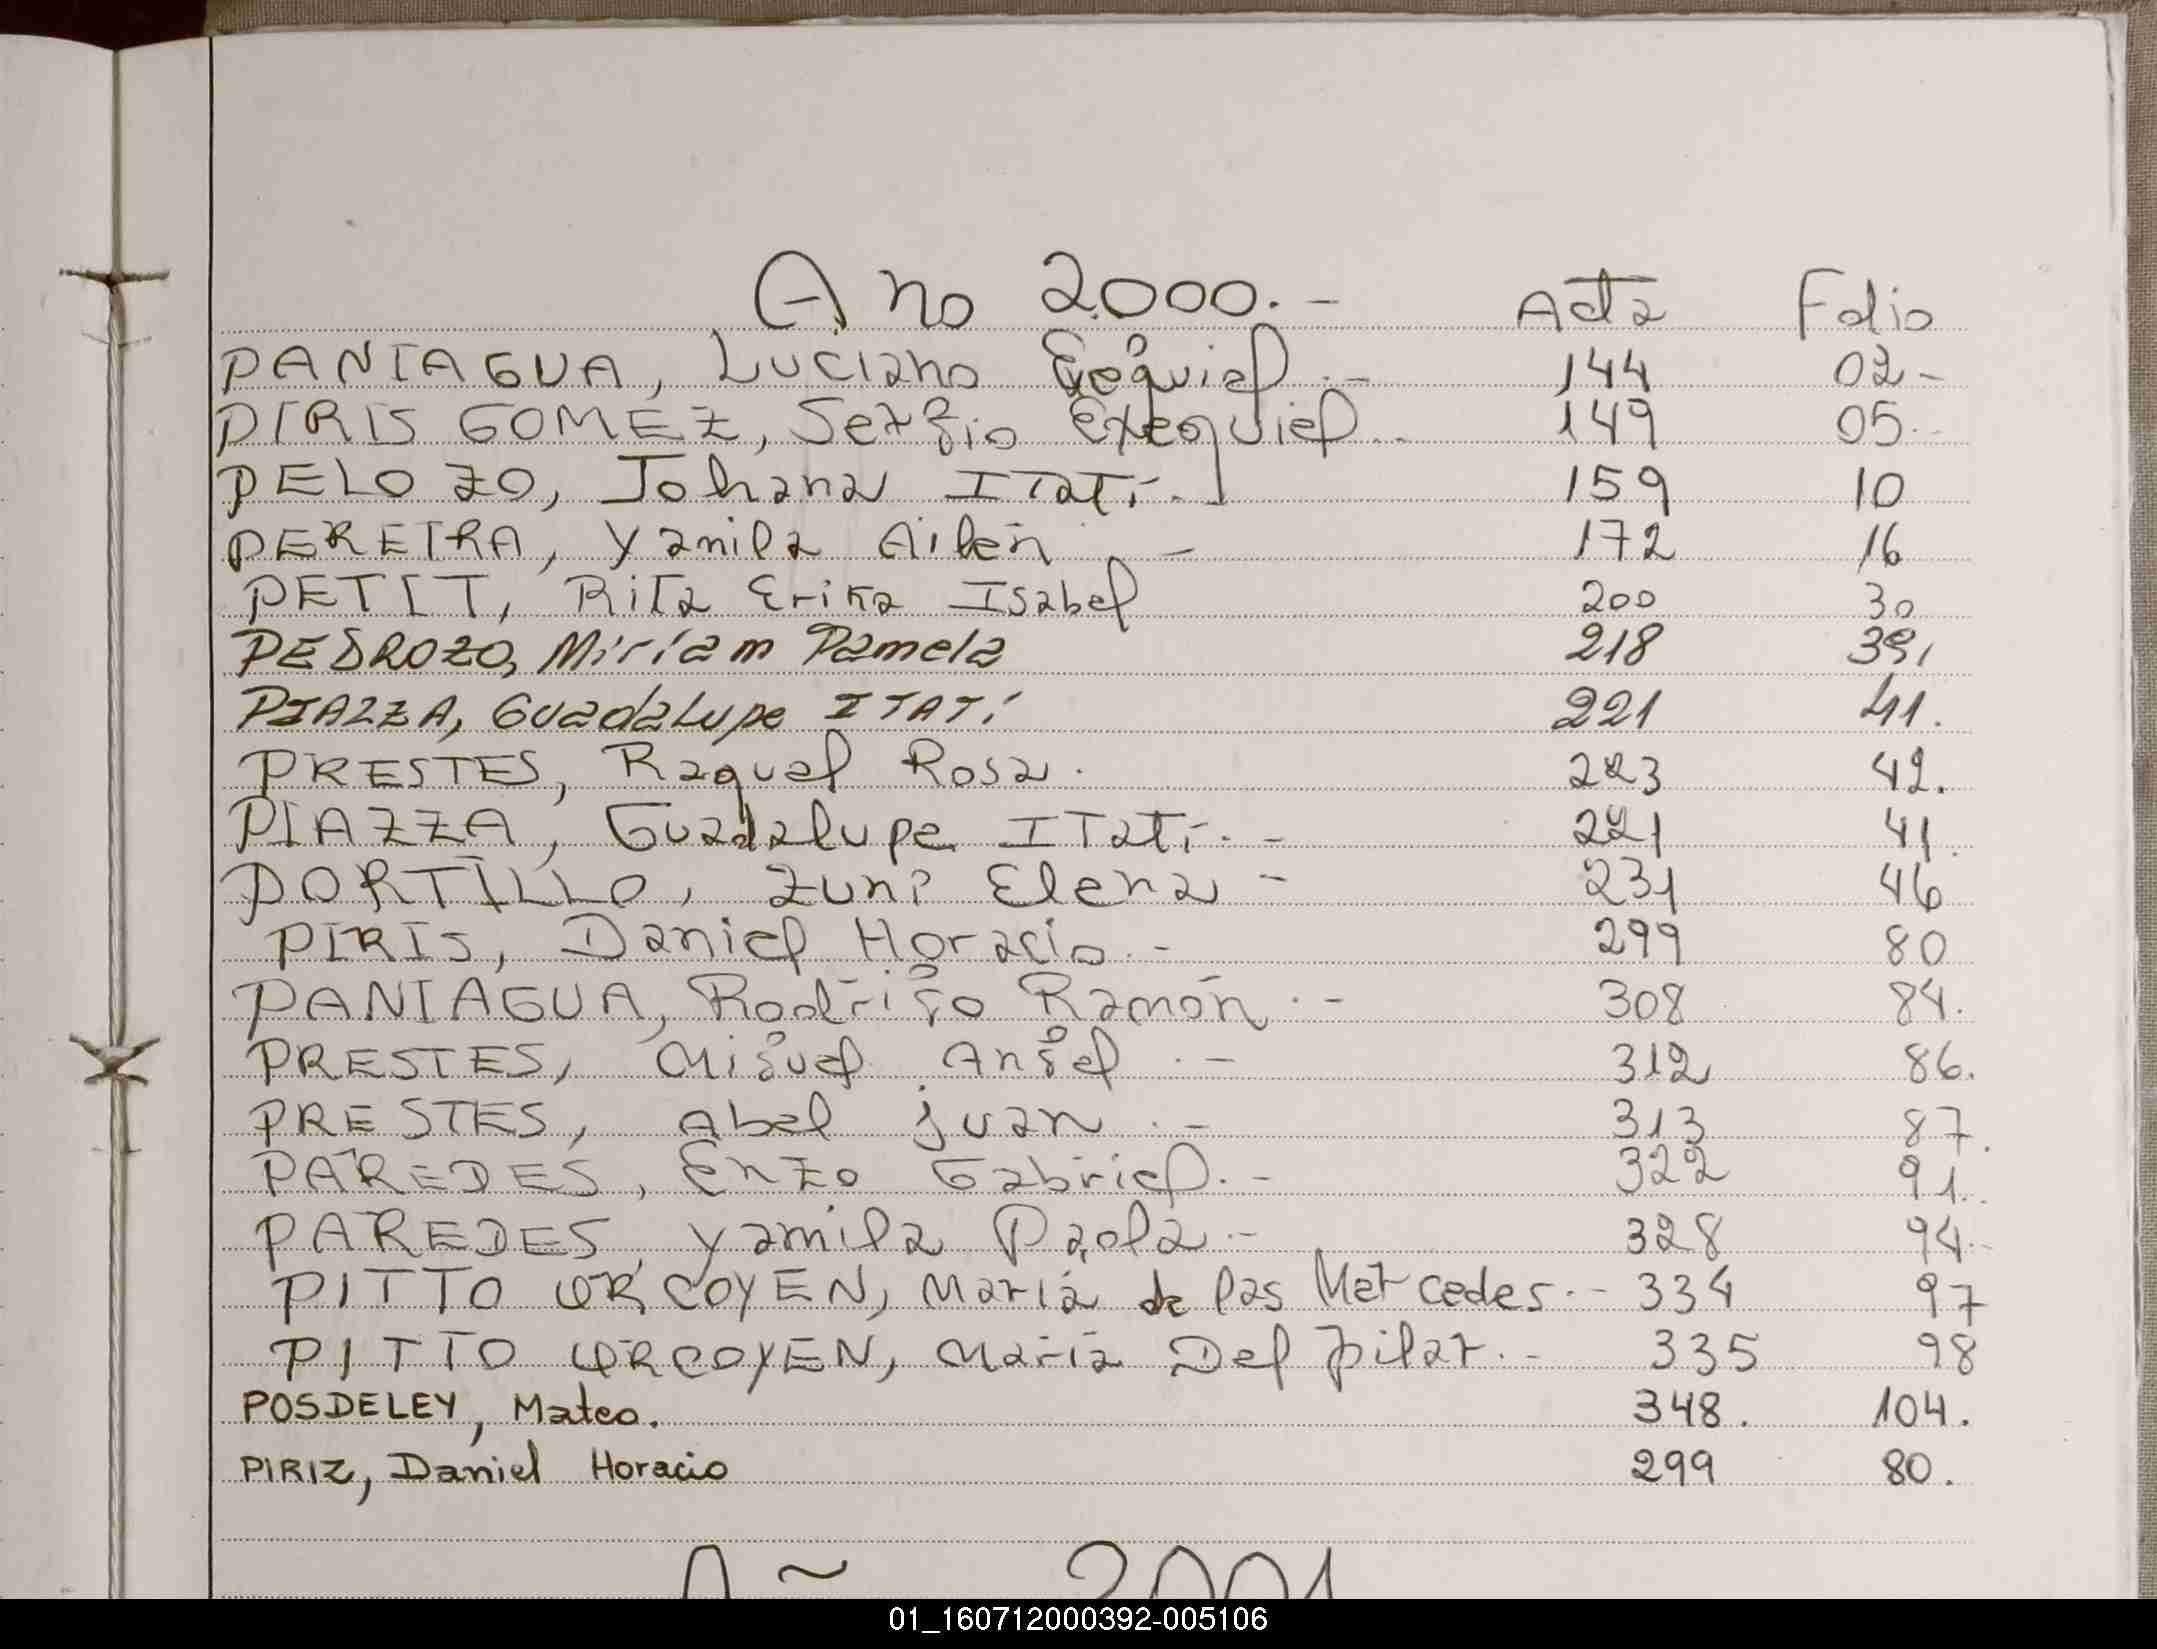 Ano 2.000.- Acta Folio
PANIAGUA, Luciano Ezequiel.- 144 02-
PIRIS GOMEZ, Sergio Exequiel.. 149 05.-
PELOZO, Johana ITatí.- 159 10
PEREIRA, Yamila Ailén - 172 16
PETIT, Rita Erika Isabel 200 30
PEDROZO, Miriam Pamela 218 39,
PIAZZA, Guadalupe ITATí 221 41.
PRESTES, Raquel Rosa. 223 42.
PIAZZA, Guadalupe ITatí.- 221 41.
PORTILLO, Zuni Elena - 231 46
PIRIS, Daniel Horacio.- 299 80
PANIAGUA, Rodrigo Ramón.- 308 84.
PRESTES, Miguel Angel.- 312 86.
PRESTES, Abel juan.- 313 87.
PAREDES, Enzo Gabriel.- 322 91..
PAREDES, Yamila Paola.- 328 94.-
PITTO URCOYEN, María de las Mercedes.- 334 97
PITTO URCOYEN, María Del pilar.- 335 98
POSDELEY, Mateo. 348. 104.
PIRIZ, Daniel Horacio 299 80.
2001
01_160712000392-005106